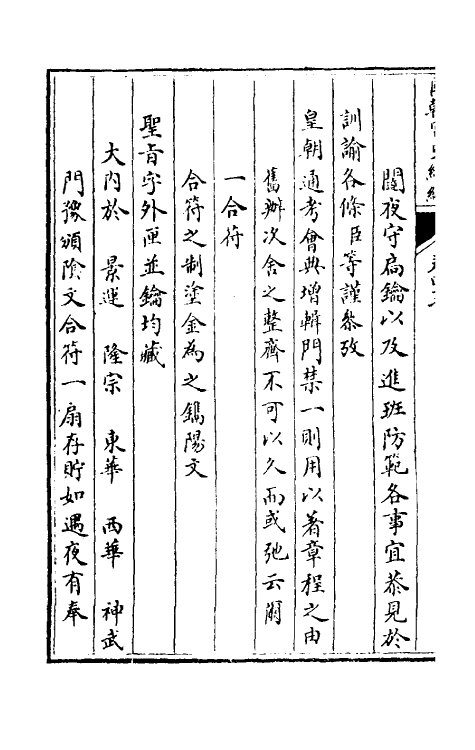 閽夜守扃鑰以及進班防範各事宜恭見於
訓諭各條臣等謹叅攷
皇朝通考會典增輯門禁一則用以著章程之由
舊辦次舍之整齊不可以久而或弛云爾
一合符
合符之制塗金為之鐫陽文
聖旨字外匣並鑰均藏
大內於 景運 隆宗 東華 西華 神武
門豫頒陰文合符一扇存貯如遇夜有奉